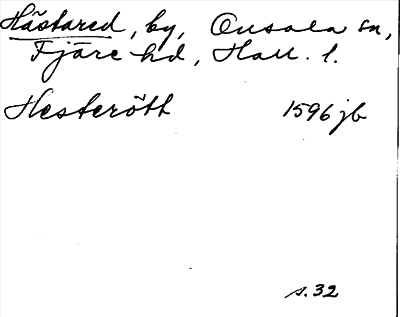 Hästared, by, Onsala sn,
Fjäre hd, Hall. l.
Hesterött 1596 jb
s. 32